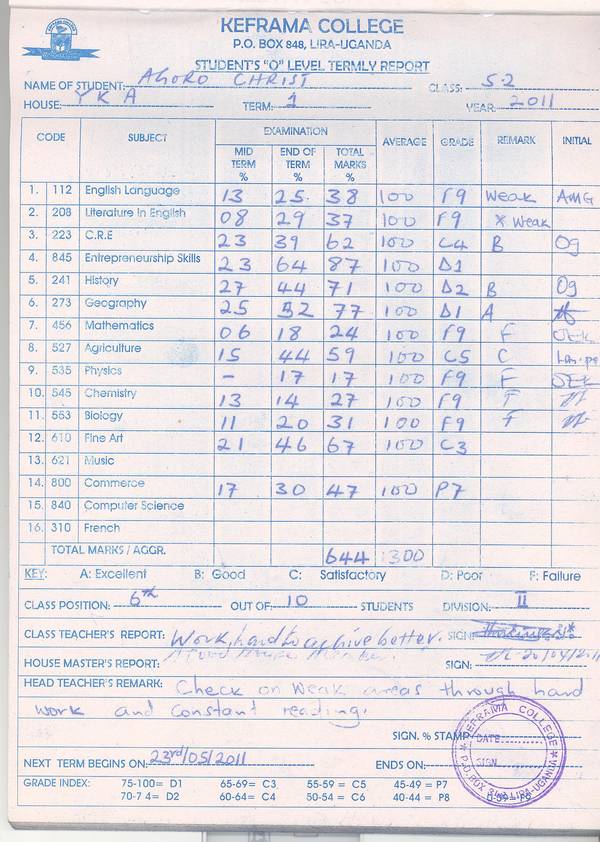 KEFRAMA COLLEGE
P.O. BOX 848, LIRA-UGANDA
STUDENT'S "O" LEVEL TERMLY REPORT
NAME OF STUDENT: AGORO CHRIST CLASS: S.2
HOUSE: Y K A TERM: 1 YEAR: 2011
CODE SUBJECT EXAMINATION AVERAGE GRADE REMARK INITIAL
MID TERM % END OF TERM % TOTAL MARKS %
1. 112 English Language 13 25 38 100 F9 Weak AMG
2. 208 Literature in English 08 29 37 100 F9 Weak
3. 223 C.R.E 23 39 62 100 C4 B Og
4. 845 Entrepreneurship Skills 23 64 87 100 D1
5. 241 History 27 44 71 100 D2 B Og
6. 273 Geography 25 52 77 100 D1 A
7. 456 Mathematics 06 18 24 100 F9 F
8. 527 Agriculture 15 44 59 100 C5 C
9. 535 Physics - 17 17 100 F9 F
10. 545 Chemistry 13 14 27 100 F9 F
11. 553 Biology 11 20 31 100 F9 F
12. 610 Fine Art 21 46 67 100 C3
13. 621 Music
14. 800 Commerce 17 30 47 100 P7
15. 840 Computer Science
16. 310 French
TOTAL MARKS / AGGR. 644 1300
KEY: A: Excellent B: Good C: Satisfactory D: Poor F: Failure
CLASS POSITION: 6th OUT OF: 10 STUDENTS DIVISION: II
CLASS TEACHER'S REPORT: Work hard to achive better. SIGN:
HOUSE MASTER'S REPORT: A good House Member. SIGN:
HEAD TEACHER'S REMARK: Check on weak areas through hard
work and constant reading.
SIGN. % STAMP
KEFRAMA COLLEGE
DATE
SIGN
P.O. BOX 848 LIRA-UGANDA
NEXT TERM BEGINS ON: 23rd/05/2011 ENDS ON:
GRADE INDEX: 75-100= D1 65-69= C3 55-59 = C5 45-49 = P7
70-7 4= D2 60-64= C4 50-54 = C6 40-44 = P8 0-39=F9